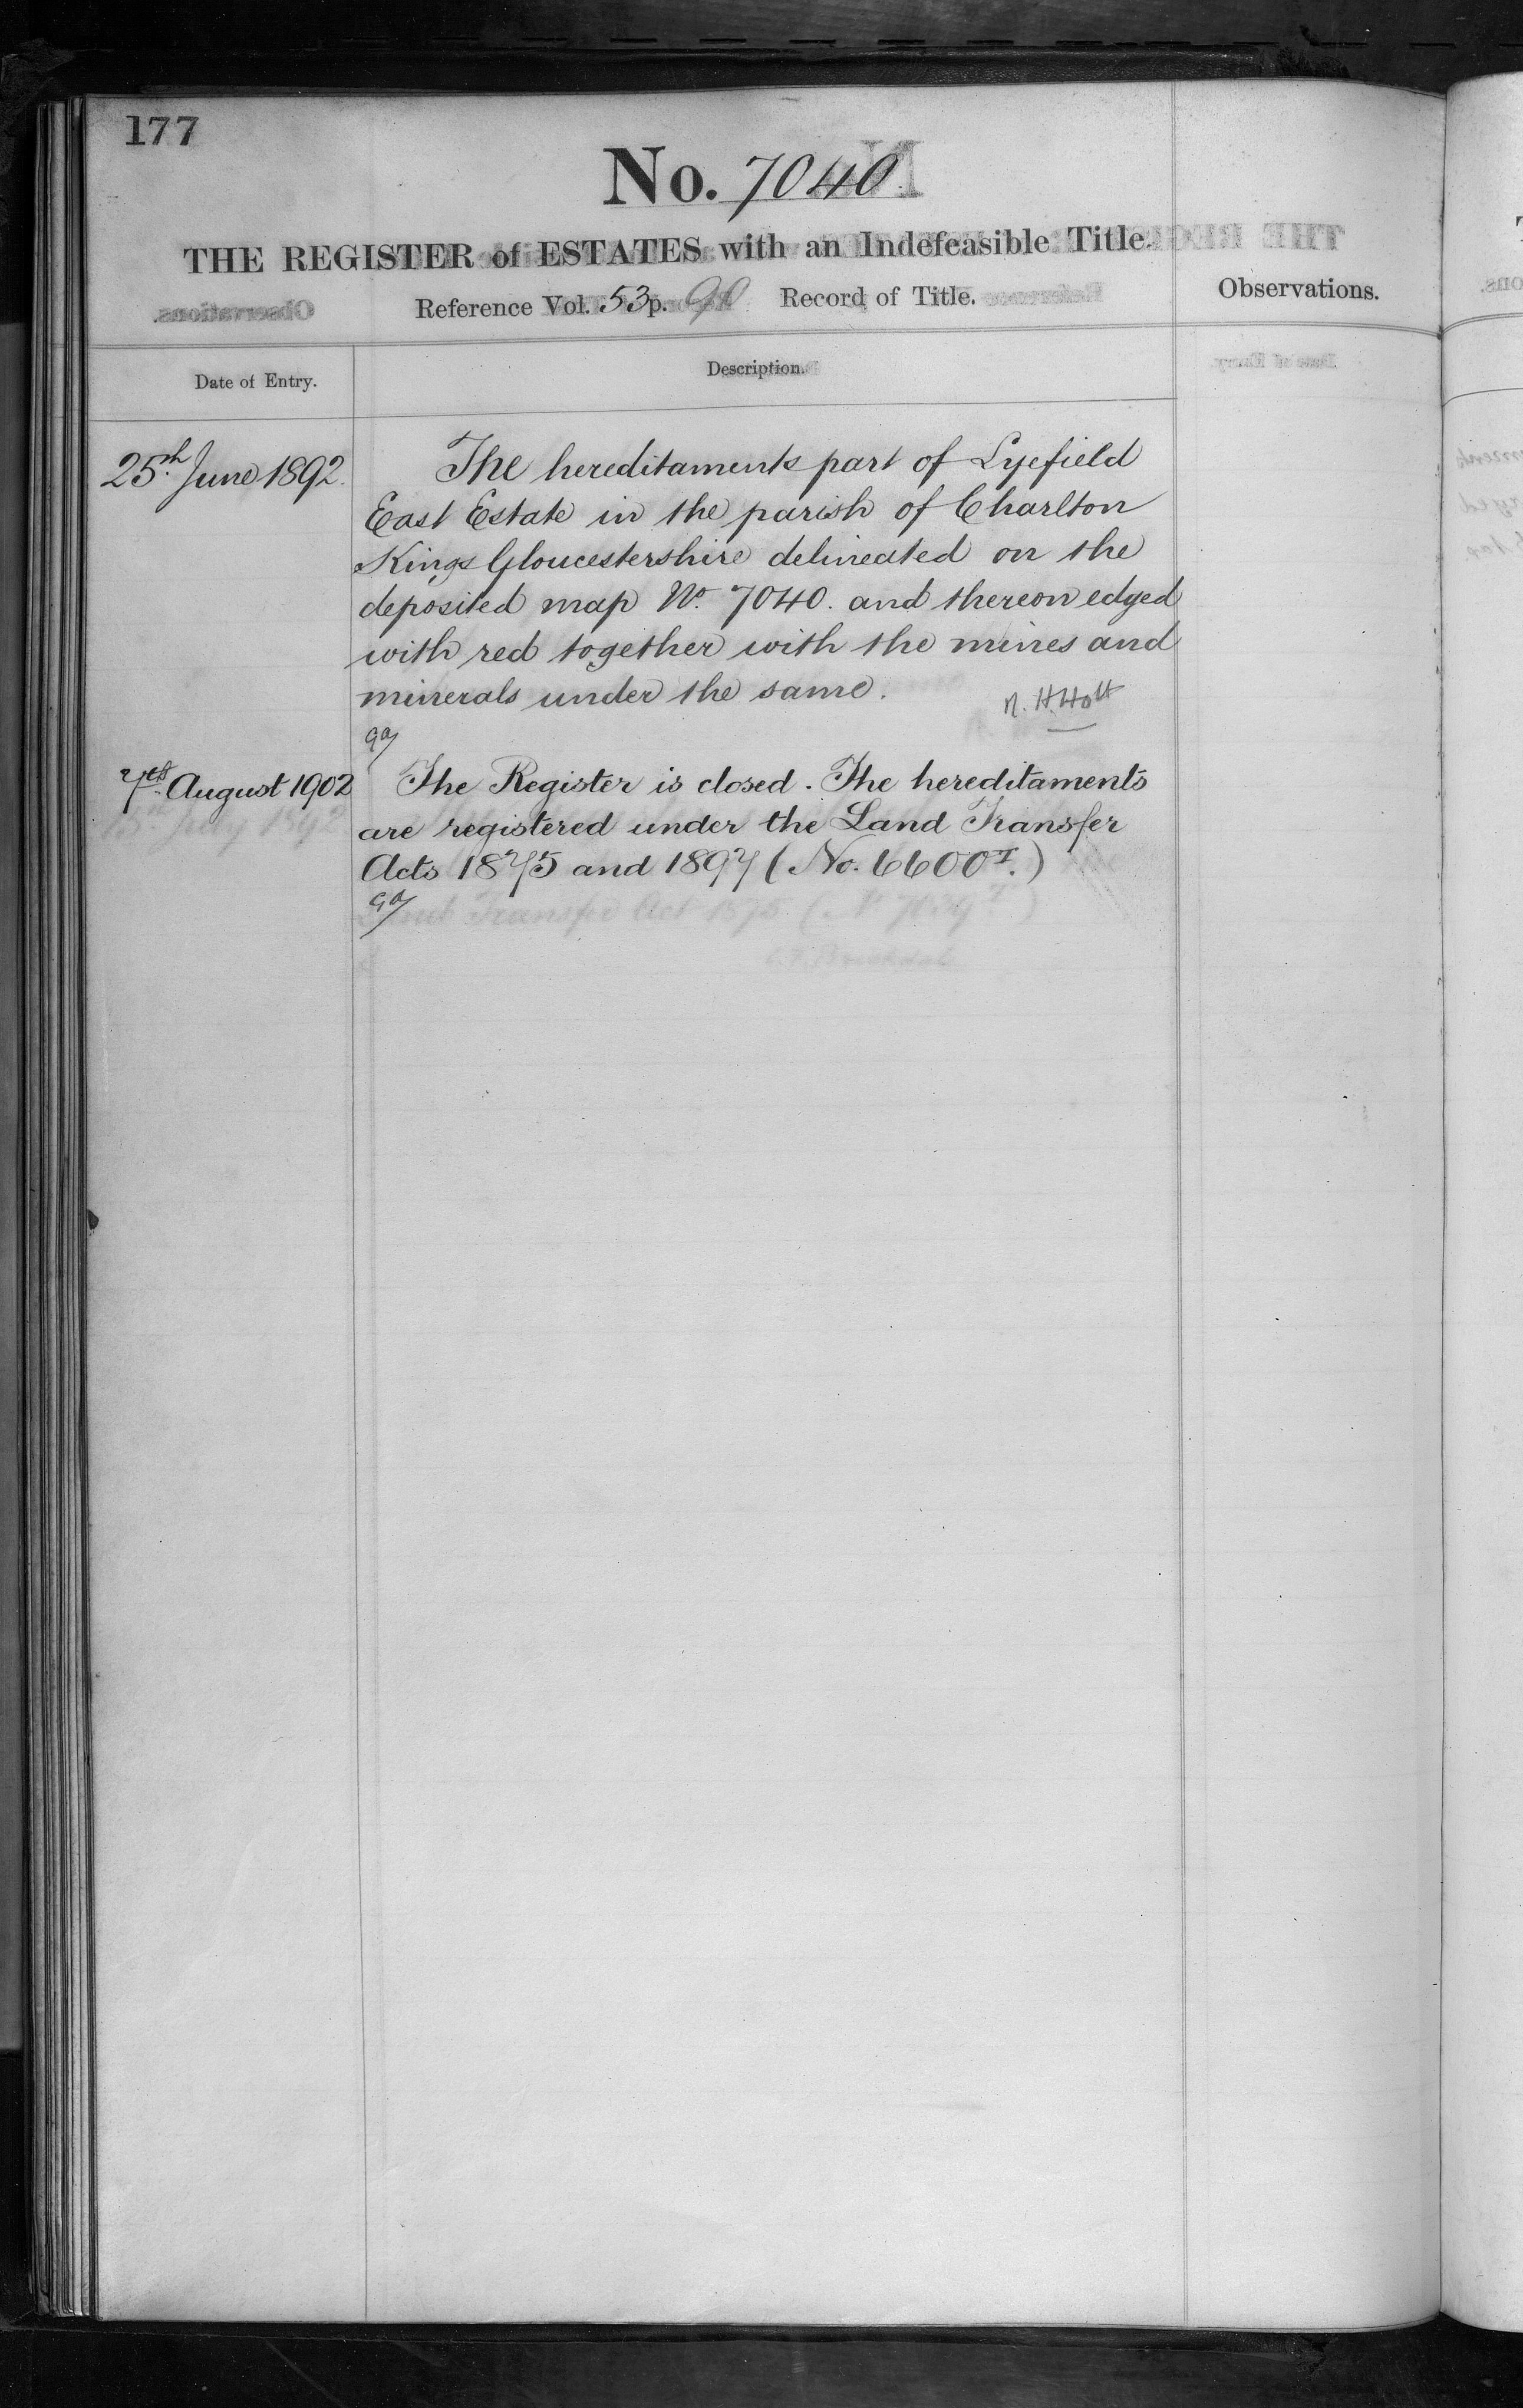 177
No. 7040
THE REGISTER of ESTATES with an Indefeasible Title.
Reference Vol. 53 p. 90 Record of Title.
Observations.
Date of Entry.
Description.
25th June 1892.
The hereditaments part of Lyefield
East Estate in the parish of Charlton
Kings Gloucestershire delineated on the
deposited map No. 7040. and thereon edged
with red together with the mines and
minerals under the same.
R. H. Holt
7th August 1902
The Register is closed. The hereditaments
are registered under the Land Transfer
Acts 1875 and 1897 (No. 6600 I.)